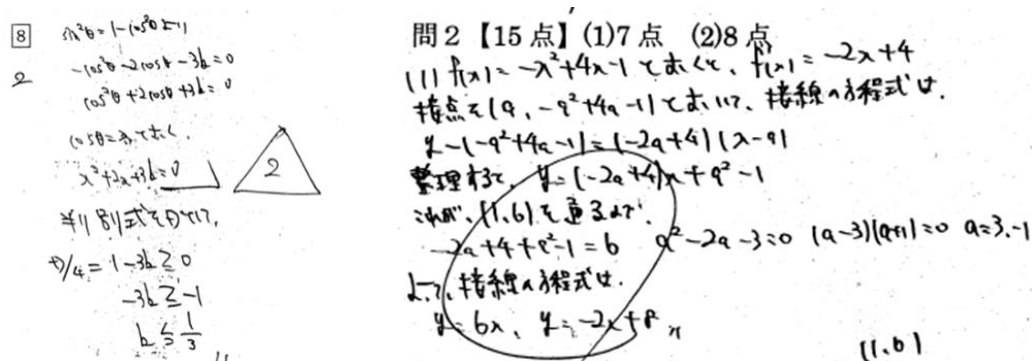 8
2
sin²θ=1-cos²θより
-cos²θ-2cosθ-3k=0
cos²θ+2cosθ+3k=0
cosθ=xとおく.
x²+2x+3k=0
2
判別式をDとして,
D/4=1-3k≧0
-3k≧-1
k≦1/3
問2【15点】(1)7点 (2)8点
(1) f(x)=-x²+4x-1とおくと、f'(x)=-2x+4
接点を(a, -a²+4a-1)とおいて、接線の方程式は.
y-(-a²+4a-1)=(-2a+4)(x-a)
整理すると、y=(-2a+4)x+a²-1
これが、(1,6)を通るので.
-2a+4+a²-1=6 a²-2a-3=0 (a-3)(a+1)=0 a=3,-1
よって、接線の方程式は.
y=6x、y=-2x+8
(1,6)